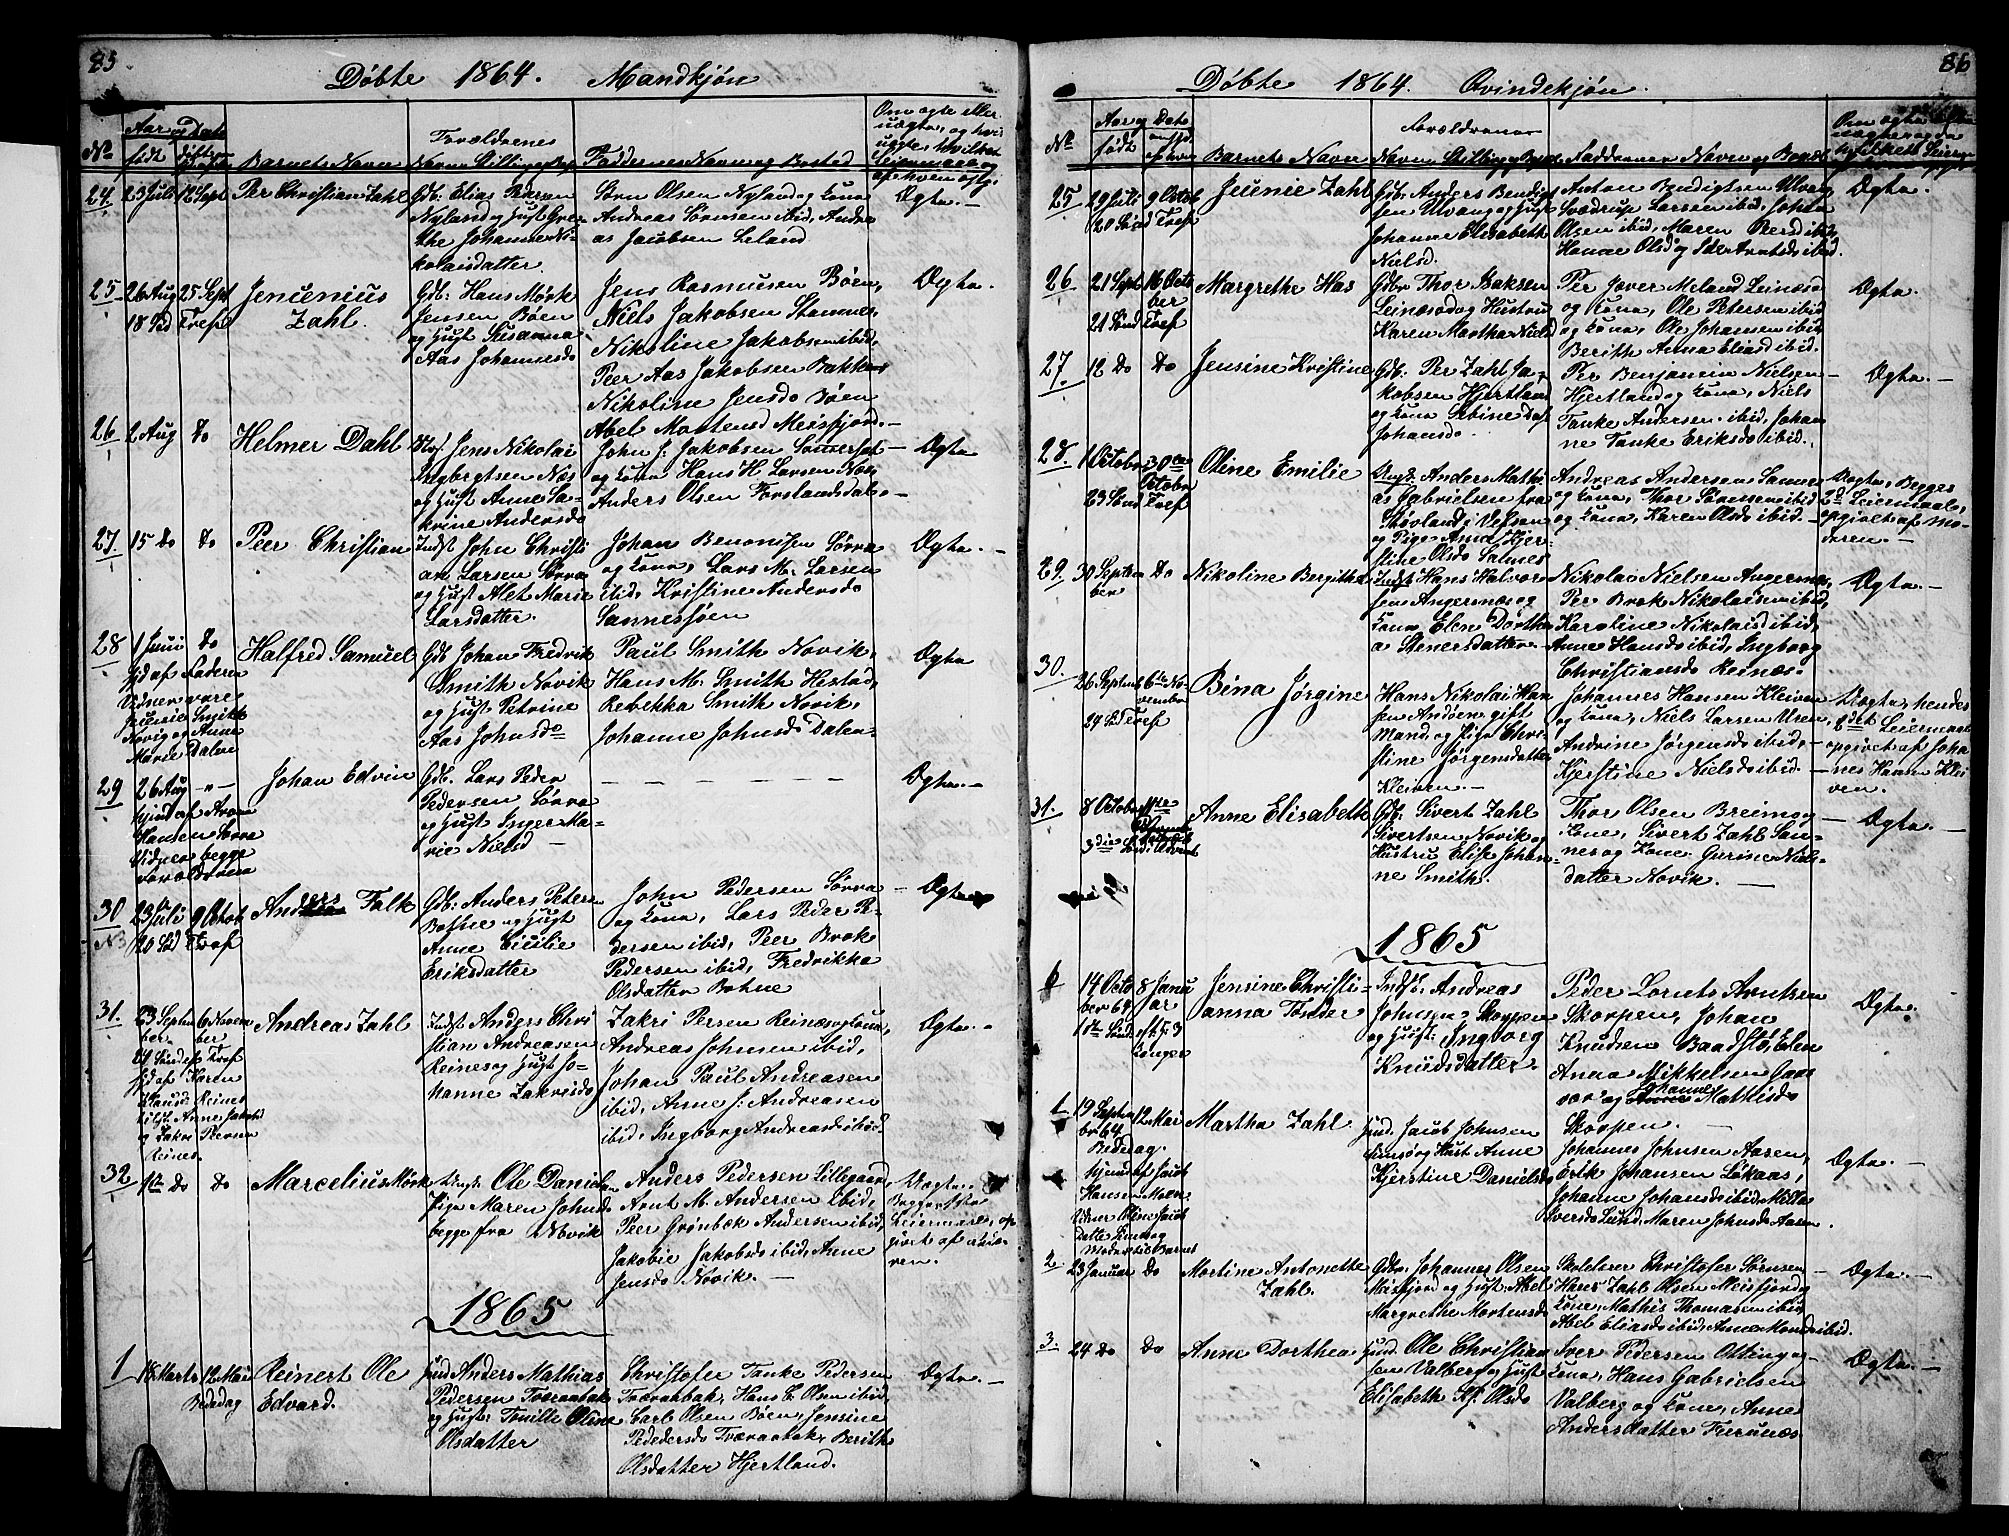 85
Døbte 1864. Mandkjøn
No
Aar og Dato
født
Barnets Navn
Forældrenes
Navn Stilling og
Faddernes Navn og Bosted
Om ægte eller
uægte, og hvis
uægte, hvilket
Leiermaal og
24.
23 Juli
12 Sept
Per Christian Zahl
Gdb: Elias Pedersen
Nyland og Hust Gre-
the Johanne Ni-
kolaisdatter.
Sørn Olsen Nyland og Kone
Andreas Sørnsen ibid, Andre
as Jacobsen Leland
Ægte. —
25
26 Aug
25 Sept
18 Sd Tref
Jencenius
Zahl.
Gdb: Hans Mørk
Jensen Bøen
og Hust Susanna
Aas Johannesd
Jens Rasmusen Bøen,
Niels Jakobsen Stamnes,
Nikoline Jakobsen ibid,
Peer Aas Jakobsen Bakken
Nikoline Jensd Bøen
Abel Mortensd Meisfjord. —
Ægte.
26
2 Aug
do
Helmer Dahl
Jens Nikolai
Ingbrigtsen Næs
og Hust Anne Ca-
krine Andersd
John J: Jakobsen Sommerset
og Kone Hans H. Larsen Næs,
Anders Olsen Forslandsdal. —
Ægte
27
15 do
do
Peer Christian
Indst John Christi
an Larsen Sørra
og Hust Alet Marie
Larsdatter.
Johan Benonisen Sørra
og Kone, Lars M. Larsen
ibid, Kristine Andersd
Sannessjøen
Ægte. —
28
1 Juni
do
Hjd af Faderen
Vidner vare
Jennie Smith
Novig og Anne
Marie Dalen
Halfred Samuel
Gdb Johan Fredrik
Smith Novik
og Hust Petrine
Aas Johnsd
Paul Smith Novik,
Hans M. Smith Hestad,
Rebekka Smith Novik,
Johanne Johnsd Dalen —
Ægte
29
26 Aug — " —
Hjemd af Aron
Hansen Sørra
Vidner begge
Forældrene
Johan Edvin
Gdb. Lars Peder
Pedersen Sørra
og Hust Inger Ma-
rie Nielsd —
— — — — — —
Ægte. —
30
23 Juli
9 Octob
20 Sd Tref
Anders Falk
Gdb: Anders Petersn
Botne og Hust
Anne Cicilie
Eriksdatter
John Pedersen Sørra
og Kone, Lars Peder Pe-
dersen ibid, Peer Brok
Pedersen ibid, Fredrikke
Olsdatter Botne
— Ægte
31.
23 Septem
ber
6 Novem
ber
24 Sd ef Tref
Hjd af Karen
Reines
Anne Jakobsd
og Zakri Persen
Reines.
Andreas Zahl
Indst Anders Chri
stian Andreasen
Reines og Hust Jo-
hanne Zakrisd
Zakri Persen Reines og Kone,
Andreas Johnsen ibid,
Johan Paul Andreasen
ibid, Anne J: Andreasen
ibid, Ingborg Andreasd ibid
Ægte. —
32
1te do
do
Marcelius Mørk
Ole Daniels
Pige Maren Johnsd
begge fra Novik
Anders Pedersen Lillegaard,
Arnt M. Andersen Ibid,
Peer Grønbæk Andersen ibid,
Jakobie Jakobsd ibid, Anne
Jensd Novik. —
Uægte.
Begges 1ste
Leiermaal, op
givet af Mode
ren.
1865
1
18 Marts
12 Mai
Bededag
Reinert Ole
Edvard.
Anders Mathias
Pedersen Tværaabak
og Hust: Tomille Oline
Olsdatter
Christofer Tanke Pedersen
Tværaabak, Hans C. Olsen ibid,
Carl Olsen Bøen, Jensine
Pedersd Tværaabak, Berithe
Olsdatter Hjertland.
Ægte. —
86
Døbte 1864. Qvindekjøn.
No
Aar og Dato
født
Barnets Navn
Forældrenes
Navn Stilling og
Faddernes Navn og Bosted
25
29 Juli
9 Octob
20 Sønd Tref
Jennie Zahl
Gdb: Anders Bendigt
sen Ulvang og Hust
Johanne Elisabeth
Nielsd.
Anton Bendigtsen Ulvang
Svadrup Larsen ibid, Johan
Olsen ibid, Maren Persd ibid,
Hanne Olsd og Ider Arntsd ibid.
Ægte.
26
21 Sept
16 Octo
ber
21 Sønd Tref
Margrethe Has
Gdbr Thor Isaksen
Leinæs og Hustru
Karen Martha Nielsd
Per Iver Meland Leinæs
og Kone, Ole Petersen ibid
og Kone, Ole Johansen ibid
Berith Anna Eliasd ibid.
Ægte.
27
12 do
do
Jensine Kristine
Gdb: Per Zahl Ja-
kobsen Hjertland
og Kone Sebine
Johansd.
Per Benjamin Nielsen
Hjertland og Kone, Niels
Tanke Andersen ibid, Johan
ne Tanke Eriksd ibid.
— Ægte. —
28
1 Octobr
30te
Octobr
23 Sønd Tref
Oline Emilie
Ungk: Anders Mathi
as Gabrielsen fra
Thovland i Vefsen
og Pige Anna Kjer-
stine Olsd Salnes
Andreas Andersen Sannes
og Kone, Thor Sørnsen ibid
og Kone, Karen Olsd ibid. —
Uægte, Begges
2d Leiermaal,
opgivet af Mo-
deren. —
29.
30 Septem
ber
do
Nikoline Bergithe
Indst Hans Halvor
sen Angersnæs og
Kone Elen Dorthe
a Stenersdatter
Nikolai Nielsen Angersnæs,
Per Brok Nikolaisen ibid,
Karoline Nikolaisd ibid,
Anne Hansd ibid, Ingborg
Christiansd Reinæs
Ægte —
30.
26 Septemb
6te No-
vember
24 Sd Tref
Bina Jørgine
Hans Nikolai Han
sen Andøen gift
Mand og Pige Chri-
stine Jørgensdatter
Kleiven. —
Johannes Hansen Kleiven
og Kone, Niels Larsen Uren
Andrine Jørgensd ibid, —
Kjerstine Nielsd ibid. —
Uægte, hendes
2det Leiermaal
opgivet af Joha
nes Hansen Klei
ven.
31.
8 Octobr
3die Sønd i Advent
Anne Elisabeth
Gdb: Sivert Zahl
Sivertsen Novik og
Hustru Elise Johan-
ne Smith.
Thor Olsen Breimo og
Kone, Sivert Zahl San-
nes og Kone Gurine Niels-
datter Novik. —
— Ægte. —
1865
14 Octo
ber 64
8 Janu
ar
1ste Sønd
ef h 3
konger
Jensine Christi-
anna Tønder
Indst: Andreas
Johnsen Skorpen
og Hust: Ingborg
Knudsdatter
Peder Lorents Arntsen
Skorpen, Johan
Knudsen Baadstø, Elen
Anna Mikkelsen
og Johanne Mathisd
Skorpen. —
Ægte
1
19 Septem
br 64
12 Mai
Bededag.
Hjemd af Jacob
Hansen
Vidner Oline Jacobs
datte
Moder til Barnet
Martha Zahl
Jacob Johnsen
og Hust Anne
Kjerstine Danielsd
Johannes Johnsen Aasen,
Erik Johansen Løkaas,
Johanne Johansd ibid, Mille
Iversd Lund, Maren Johnsd Aasen.
Ægte. —
2
23 Januar
do
Martine Antonette
Zahl.
Gdbr. Johannes Olsen
Meisfjord og Hust: Abel
Margrethe Mortensd
Skolelærer Christofer Sørnsen
Hans Zahl Olsen Meisfjord og
Kone, Mathis Thomasen ibid,
Abel Eliasd ibid, Anne Monsd ibid.
— Ægte. —
3
24 do
do
Anne Dorthea
Ole Christian
sen Valberg og Hust
Elisabeth Kj. Olsd
Iver Pedersen Otting og
Kone, Hans Gabrielsen
Valberg og Kone, Anne
Andersdatter Furunæs
Ægte. —